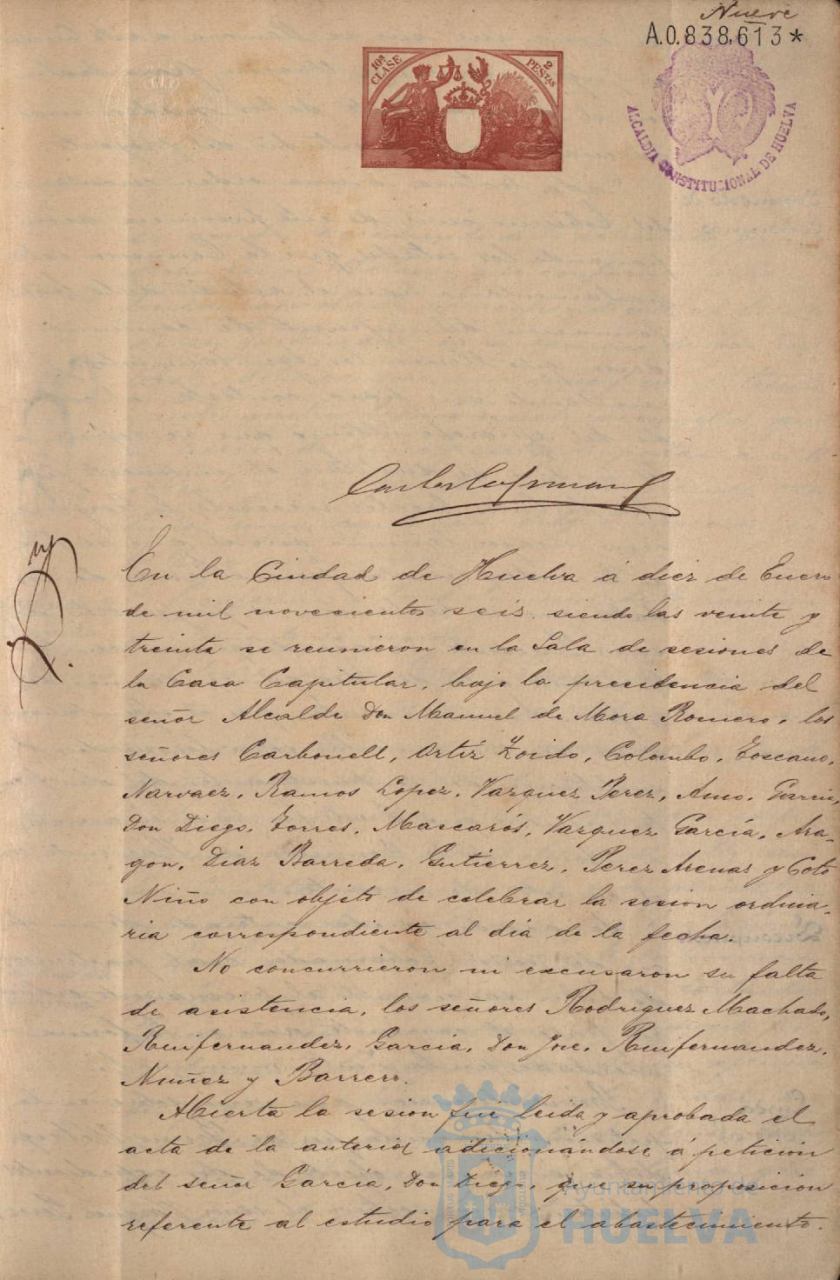 Nueve
A.0.838,613*
10ª CLASE
2 PESTAS
ALCALDIA CONSTITUCIONAL DE HUELVA
En la Ciudad de Huelva á diez de Enero
de mil novecientos seis, siendo las veinte y
treinta se reunieron en la Sala de sesiones de
la Casa Capitular, bajo la presidencia del
señor Alcalde Don Manuel de Mora Romero, los
señores Carbonell, Ortiz y Zoido, Colombo, Toscano,
Narvaez, Ramos Lopez, Vazquez Perez, Amo, García,
Don Diego, Torres, Mascarós, Vazquez García, Ara-
gon, Diaz Barreda, Gutiérrez, Perez Arenas y Coto
Niño con objeto de celebrar la sesion ordina-
ria correspondiente al día de la fecha.
No concurrieron ni excusaron su falta
de asistencia, los señores Rodriguez Machado,
Ruifernandez, García, Don José, Ruifernandez,
Nuñez y Barrero.
Abierta la sesion fué leida y aprobada el
acta de la anterior adicionándose á petición
del señor García, Don Diego, que su proposición
referente al estudio para el abastecimiento.
Ayuntamiento de
HUELVA